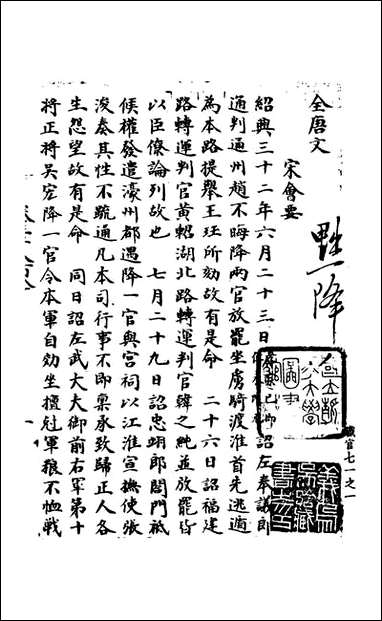 全唐文
宋會要
黜降
紹興三十二年六月二十三日
詔左奉議郎
通判通州趙不晦降兩官放罷坐虜騎渡淮首先逃遁
為本路提舉王珏所劾故有是命 二十六日詔福建
路轉運判官黃輗湖北路轉運判官韓之純並放罷皆
以臣僚論列故也 七月二十九日詔忠翊郎閤門祗
候權發遣濠州郡遇降一官與宮祠以江淮宣撫使張
浚奏其性不疏通凡本司行事不即稟承致歸正人各
生怨望故有是命 同日詔左武大夫御前右軍第十
將正將吳宏降一官令本軍自効坐擅冠軍狠不恤戰
職官七一之一